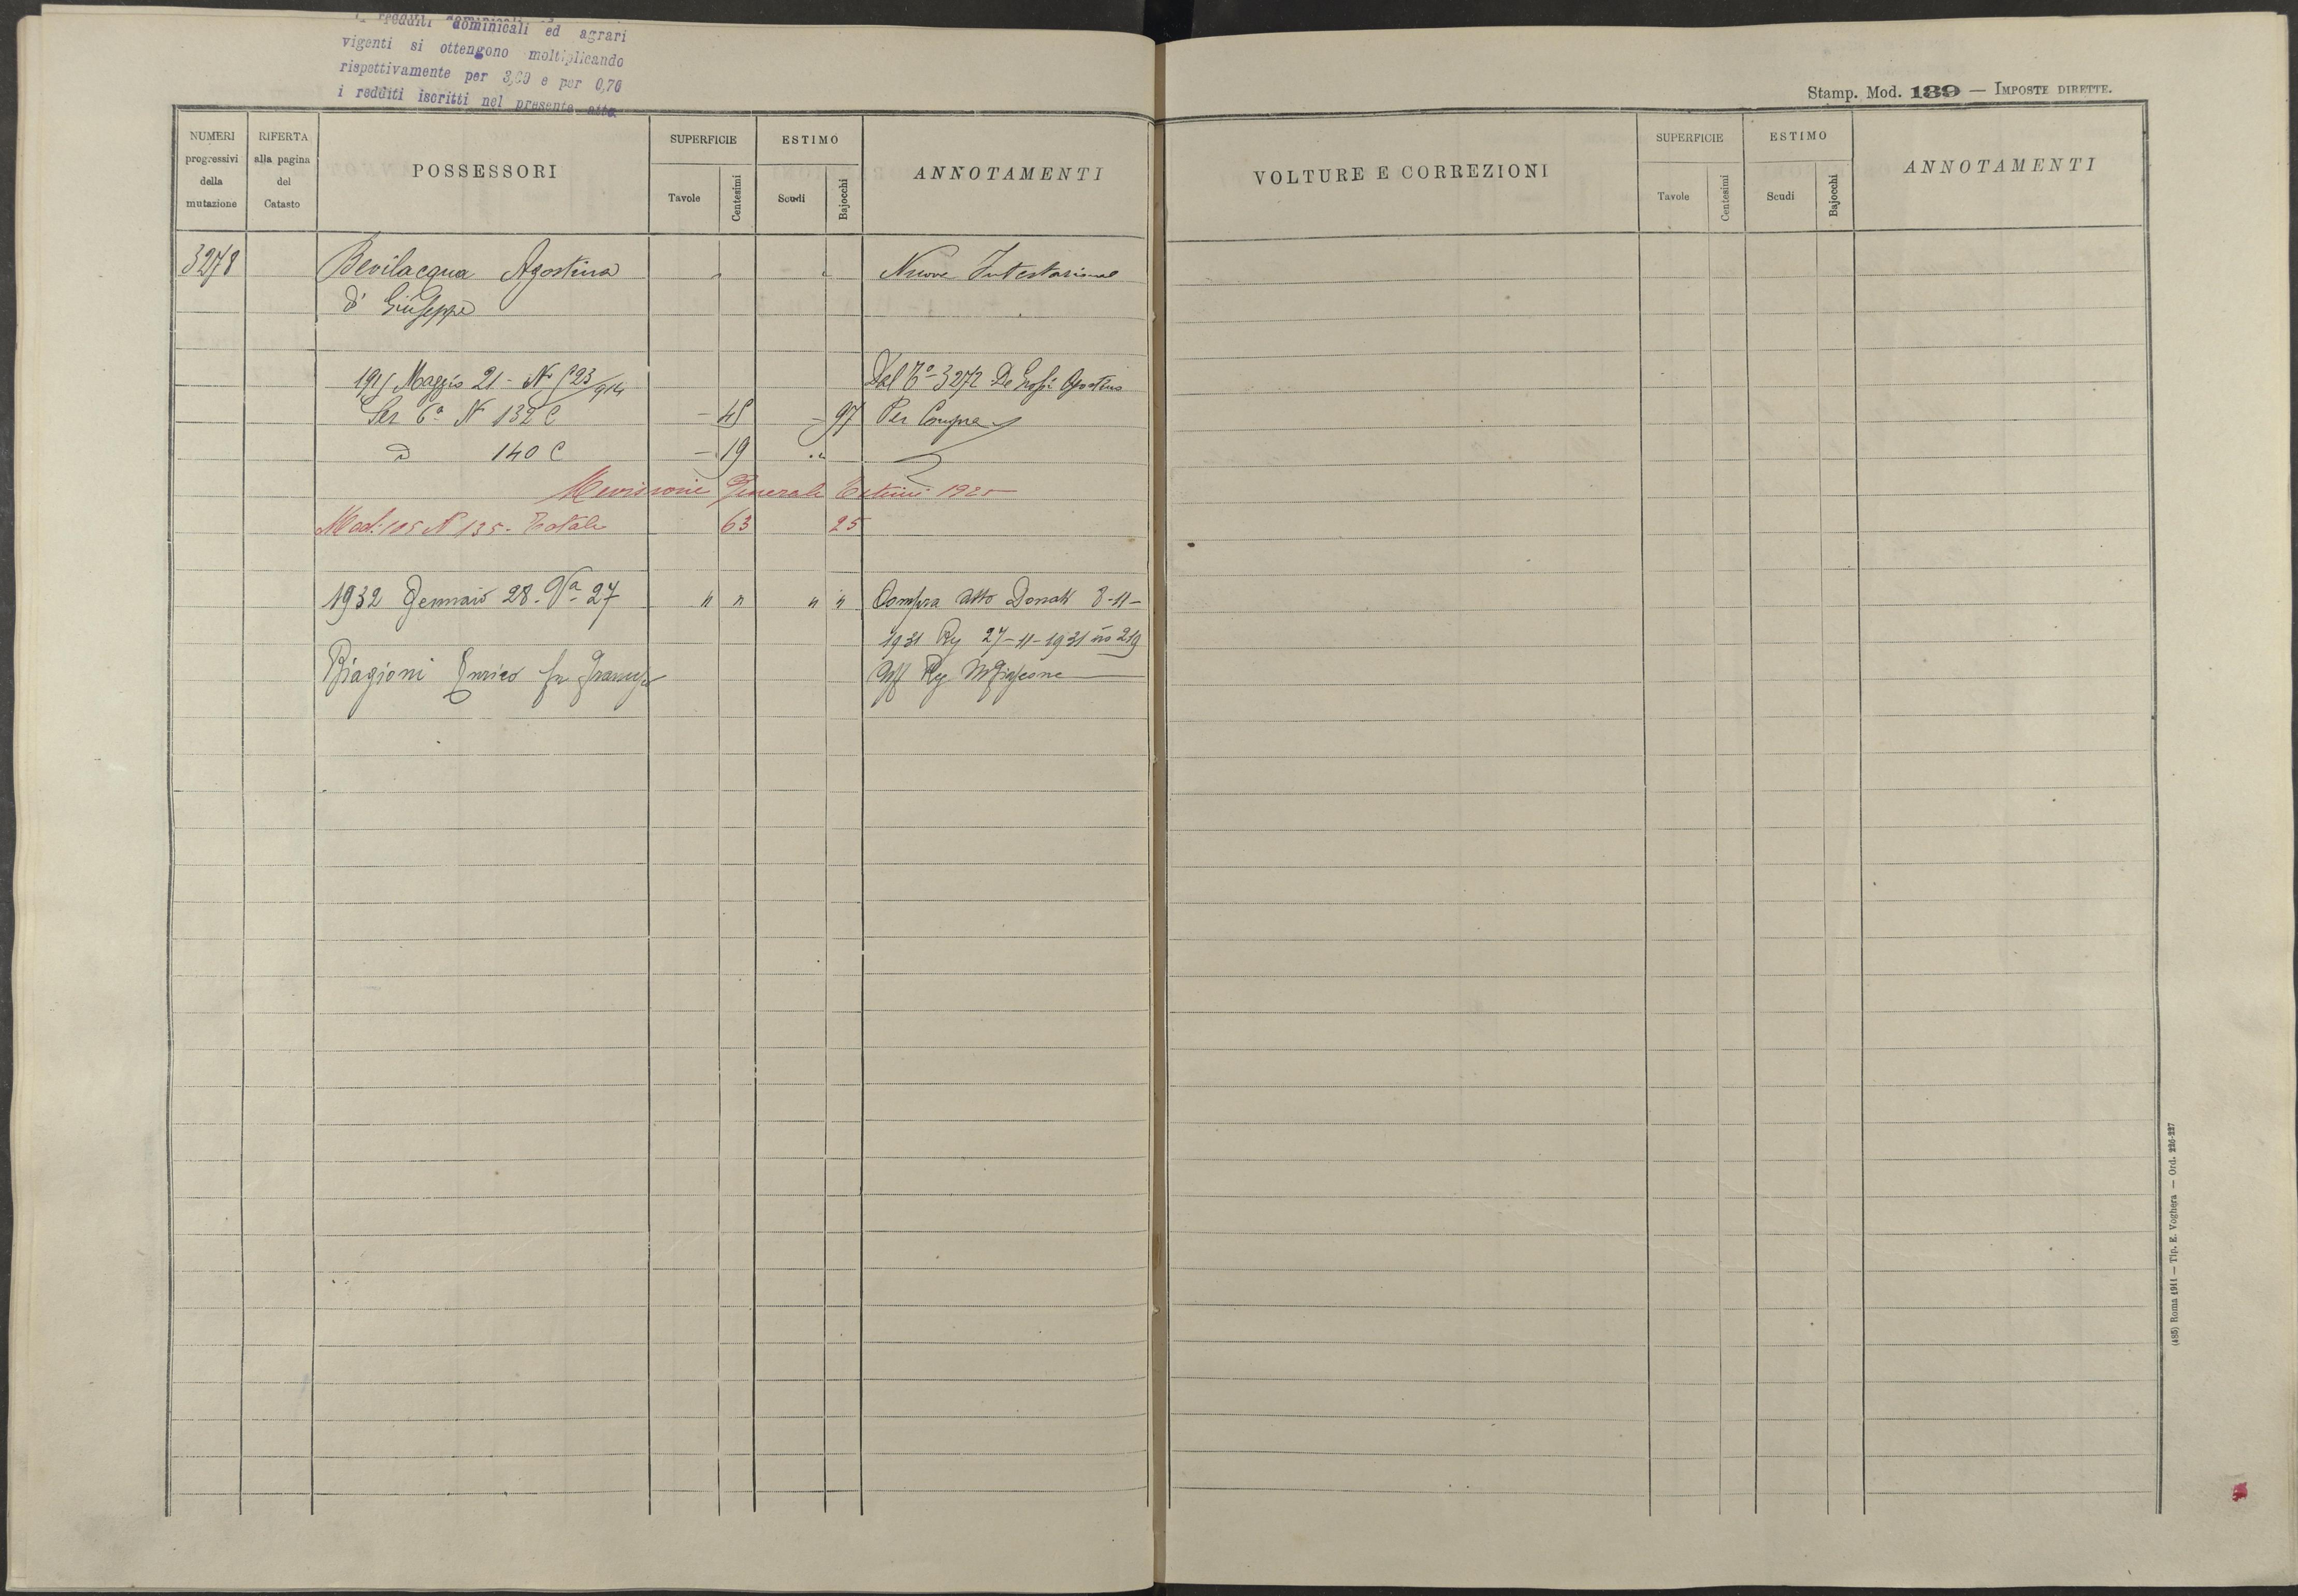 redditi dominicali ed agrari
vigenti si ottengono moltiplicando
rispettivamente per 3,60 e per 0,70
i redditi iscritti nel presente atto.
Stamp. Mod. 189 — IMPOSTE DIRETTE.
NUMERI progressivi della mutazione
RIFERTA alla pagina del Catasto
POSSESSORI
SUPERFICIE
Tavole
Centesimi
ESTIMO
Scudi
Bajocchi
ANNOTAMENTI
VOLTURE E CORREZIONI
SUPERFICIE
Tavole
Centesimi
ESTIMO
Scudi
Bajocchi
ANNOTAMENTI
3278 Bevilacqua Agostina Nuova Intestazione
di Giuseppe
1915 Maggio 21 - N° 523/914 Dal 3272 De
Sez 6a N 132 C - 45 - 97 Per Compra
140 C - 19
Revisione Generale Estimi 1925
Mod. 105 N 135. Totale 63 25
1932 Gennaio 28. 27 " " " " Compra atto Donati 8-11-
1931 Rg 27-11-1931 no 219
Biagioni Enrico fu Rg
(485) Roma 1911 — Tip. E. Voghera — Ord. 226-227